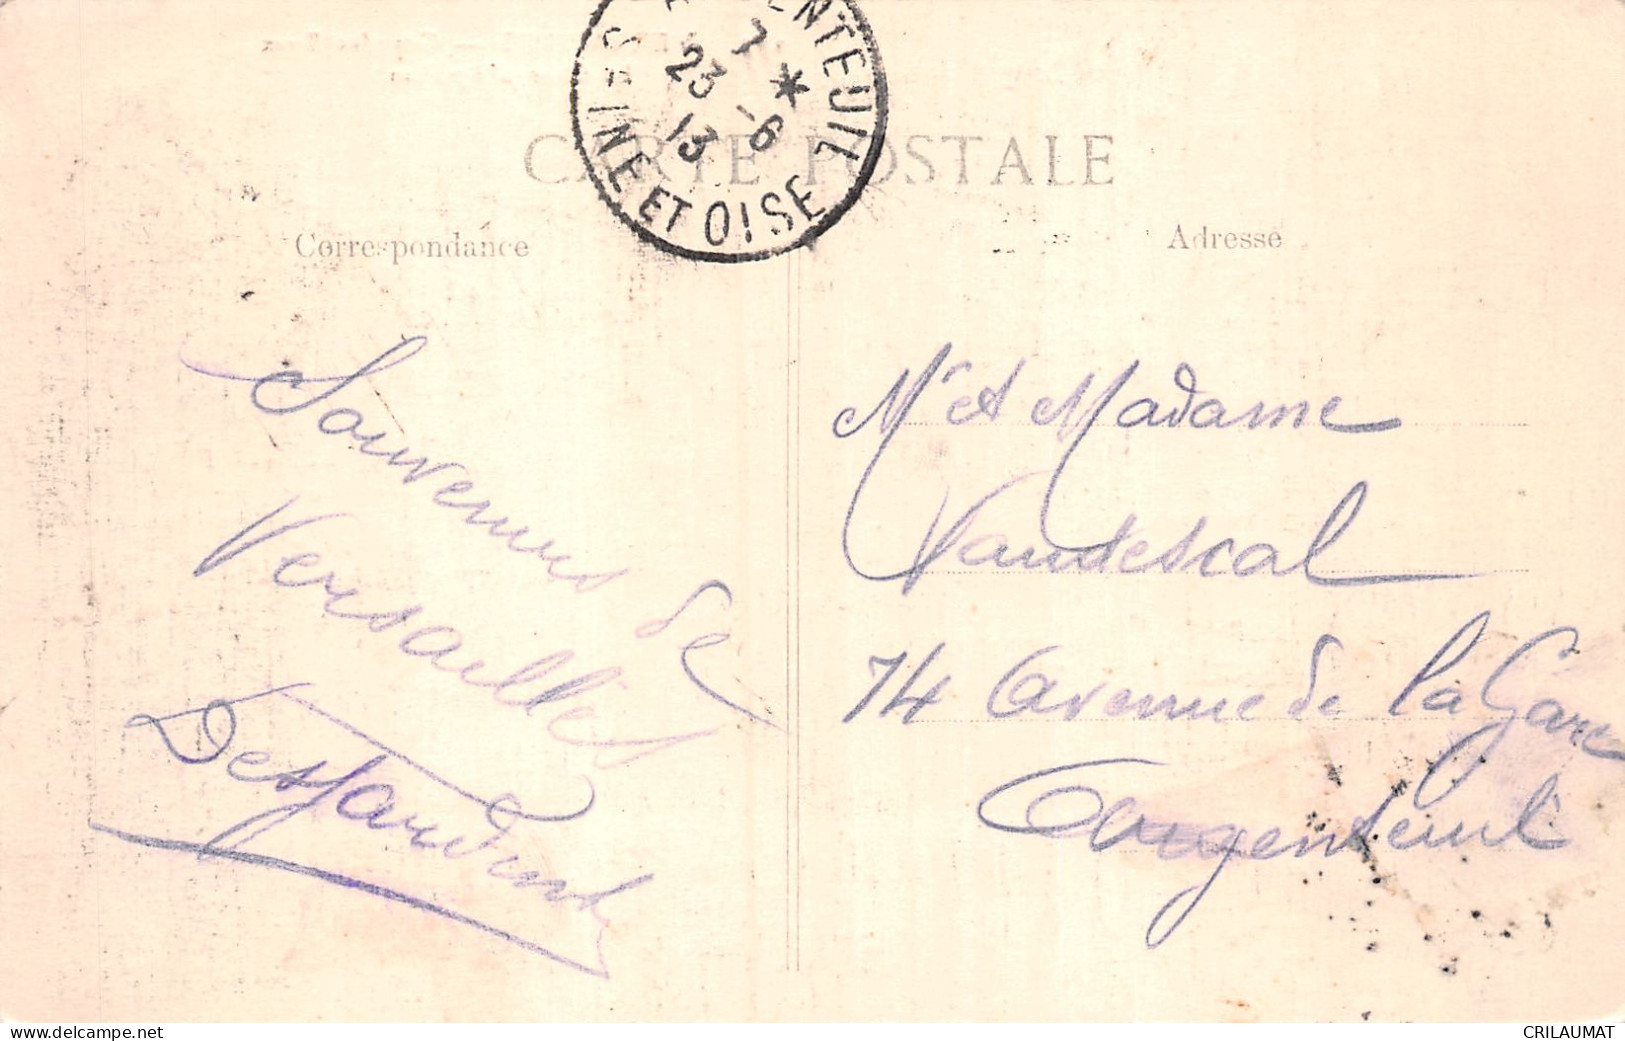 ARGENTEUIL
7 *
23 -6
13
SEINE ET OISE
CARTE POSTALE
Correspondance
Adresse
Souvenus de
Versailles
Desjardins
Mr et Madame
Vandescal
74 Avenue de la Gare
Argenteuil
www.delcampe.net
CRILAUMAT